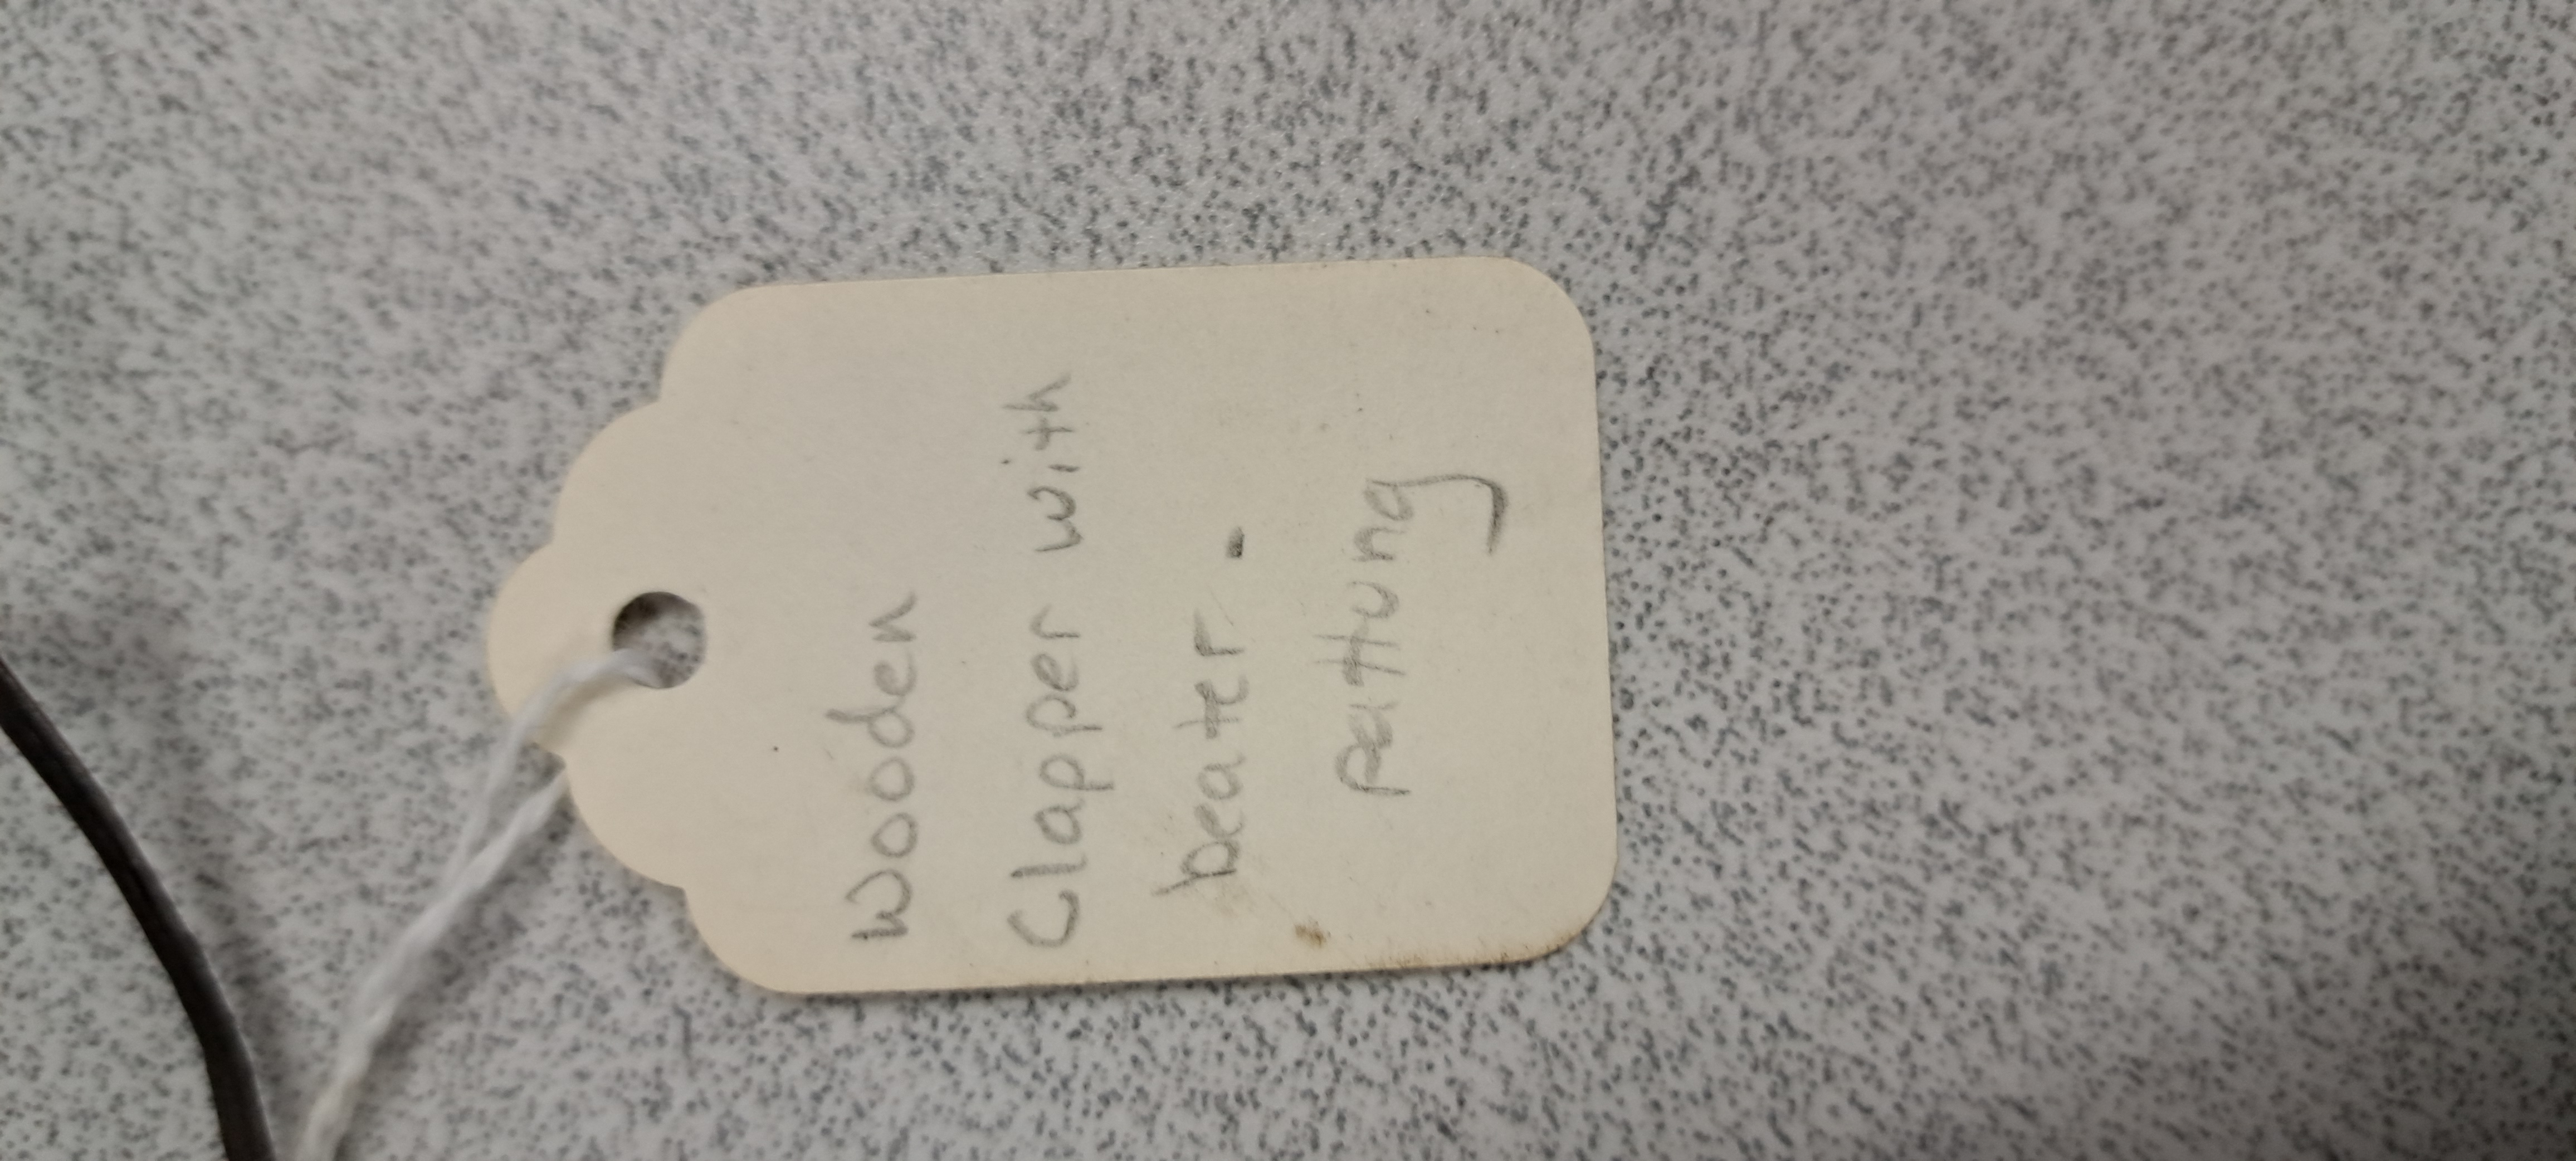 Wooden
Clapper with
beater.
pattung